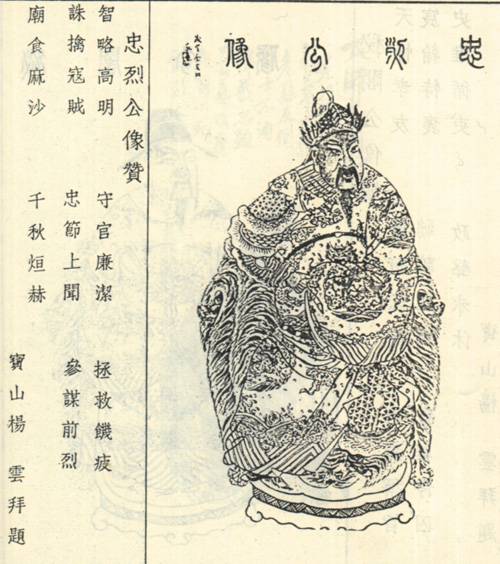 忠烈公像
忠烈公像贊
智略高明 守官廉潔 拯救饑疲
誅擒寇賊 忠節上聞 參謀前烈
廟食麻沙 千秋烜赫
寶山楊 雲拜題